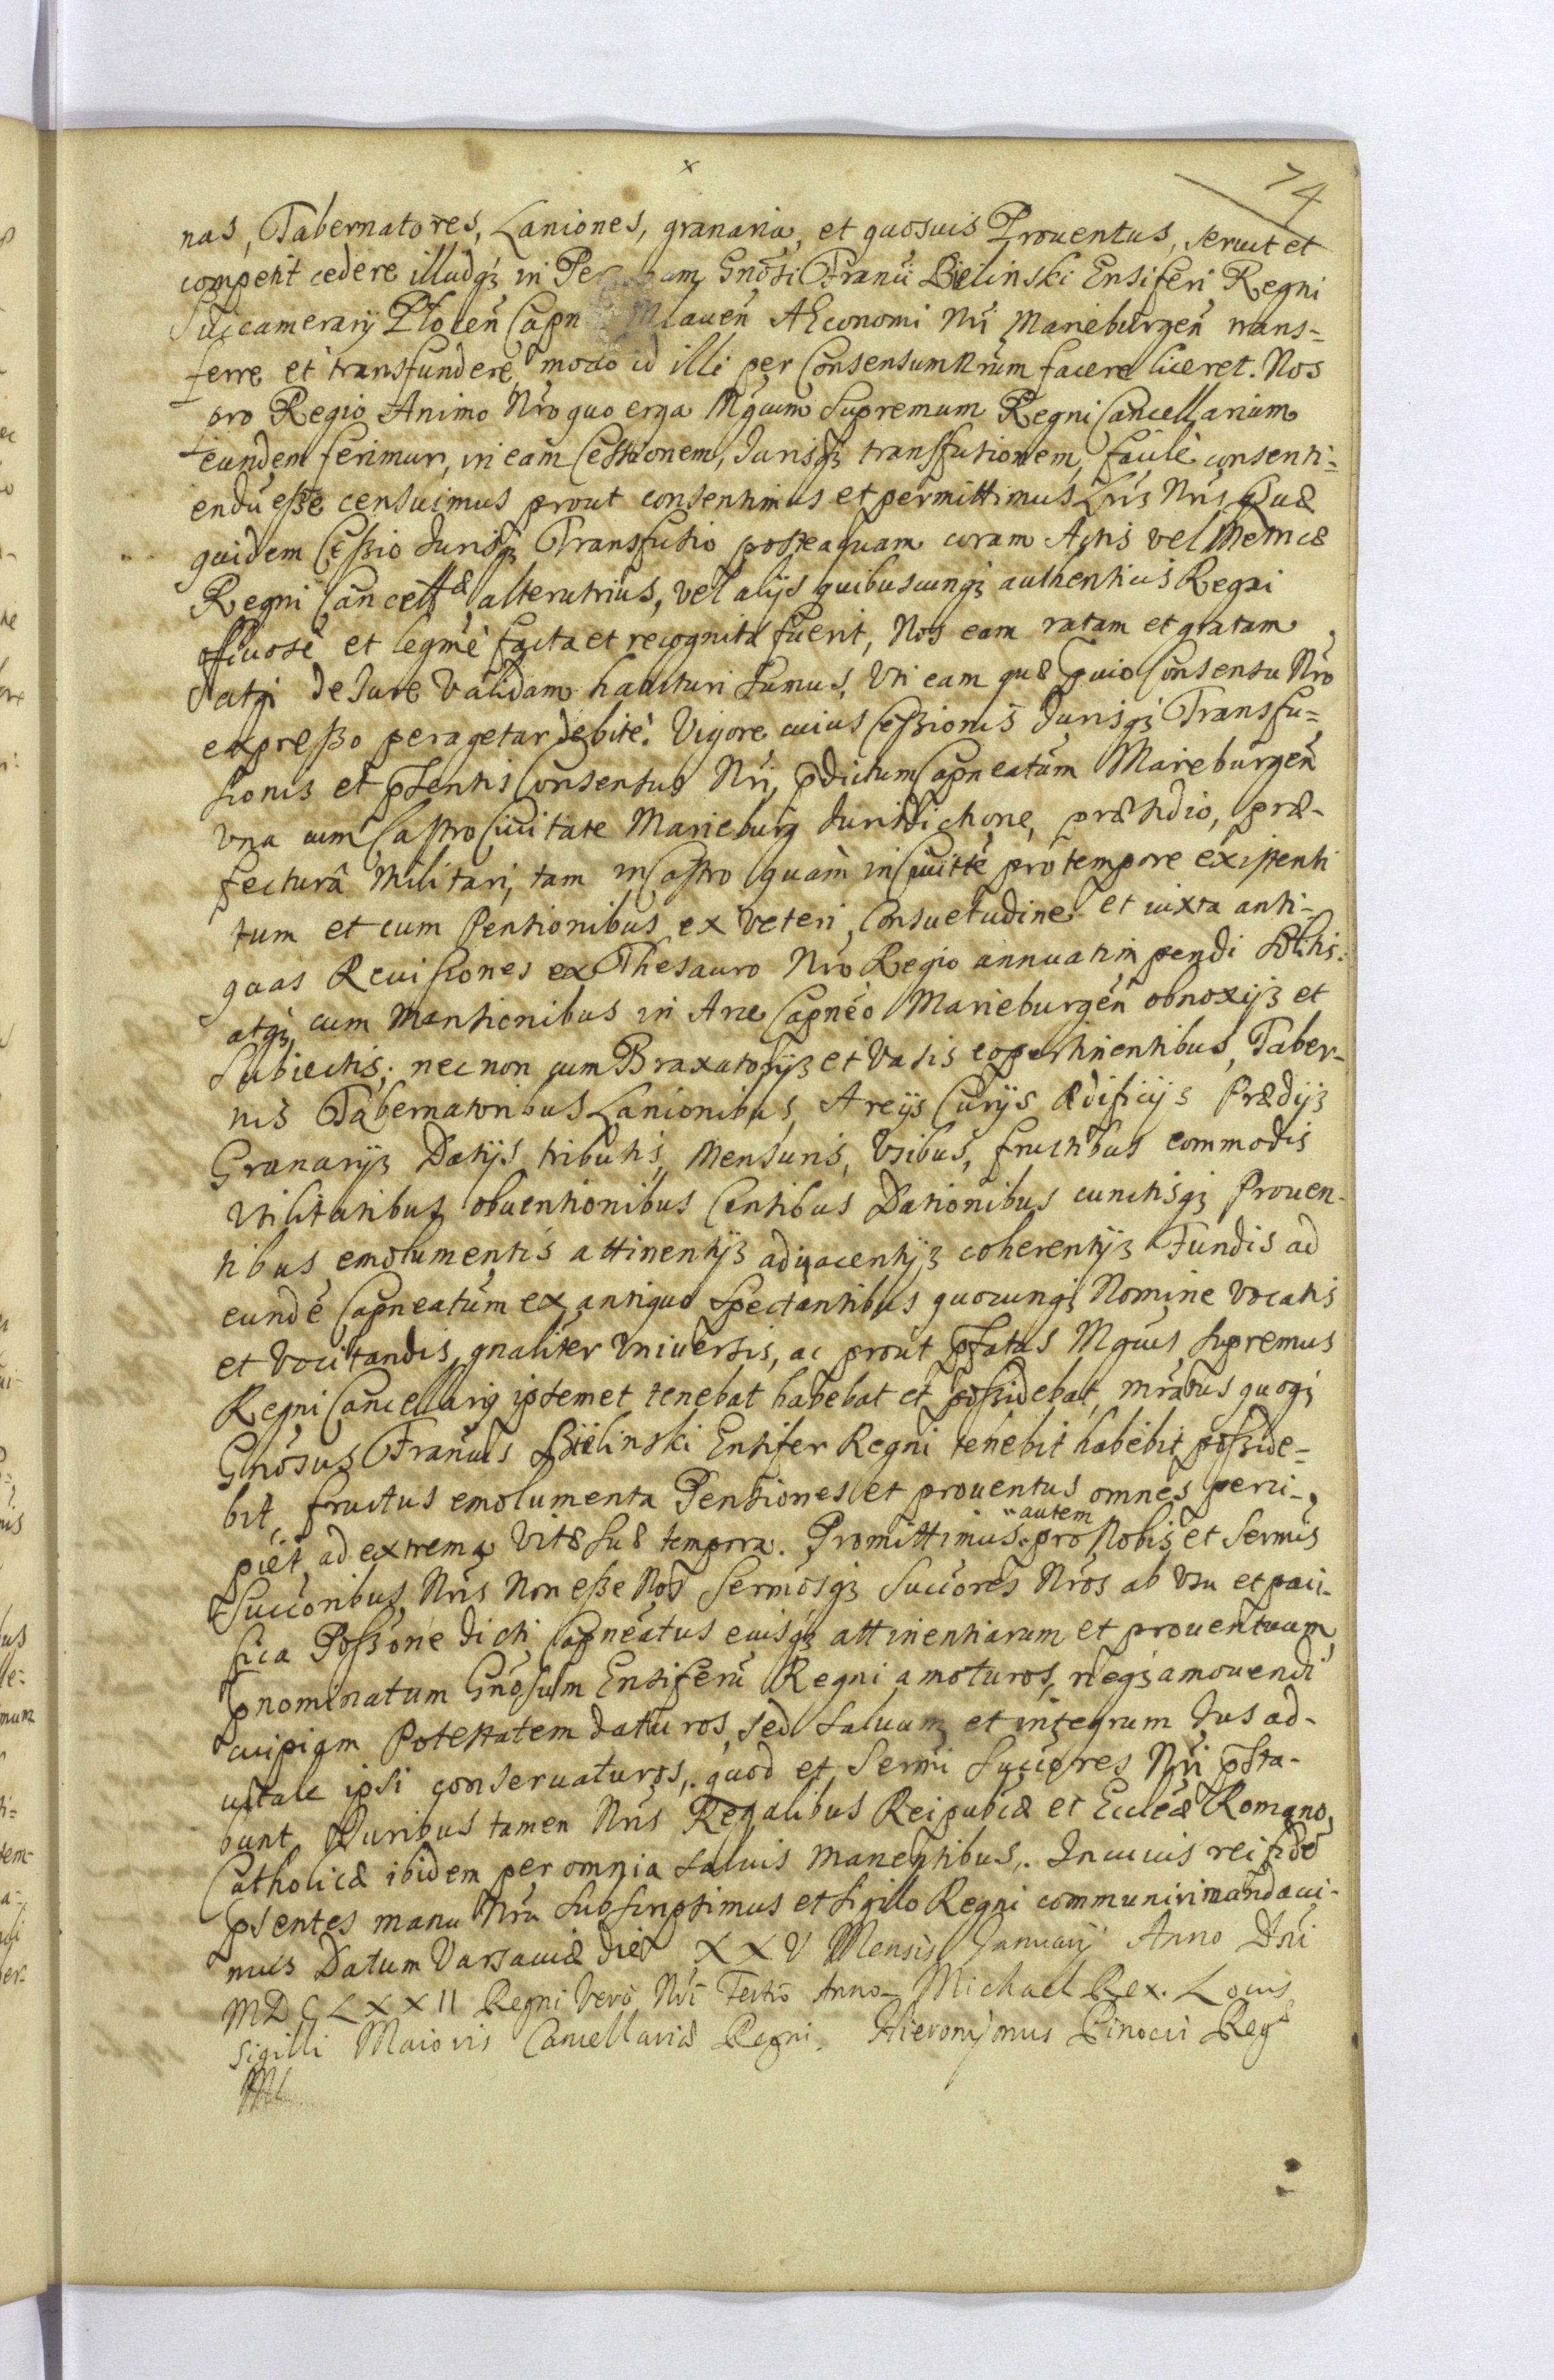 74
nas, Tabernatores, Laniones, granaria, et quosuis Prouentus, seruit et
competit cedere illudq3 in Per am Gnõsi Franci Bielinski Ensiferi Regni
Succamerarij Płocen̄ Capn Mlauen̄ AEconomi Nri Marieburgen̄ trans=
ferre et transfundere modo id illi per Consensum Nrum facere liceret. Nos
pro Regio Animo Nro quo erga Mgcum Supremum Regni Cancellarium
eundem ferimur, in eam Cessionem, Jurisq3 transfusionem, facile consenti=
endũ esse censuimus prout consentimus et permittimus Lris Nris Quæ
quidem Cessio Jurisq3 Transfusio posteaquam coram Actis vel Metricæ
Regni Cancellæ alterutrius, vel alijs quibuscunq3 authenticis Regni
officiose et legmè facta et recognita fuerit, Nos eam ratam et gratam
atq3 de Jure validam habituri sumus, Vti eam quæ Consensu Nro
expresso peragetur debitè. Vigore cuius Cessionis Jurisq3 Transfu=
sionis et pñtis Consensus Nri, pdictum Capneatum Marieburgen̄
vna cum Castro Ciuitate Marieburg Jurisdictione, præsidio, præ-
fecturâ Militari, tam in Castro quam in Ciuitte pro tempore existenti
tum et cum Pensionibus ex veteri Consuetudine et iuxta anti-
quas Reuisiones ex Thesauro Nro Regio annuatim pendi solitis
atq3 cum Mansionibus in Arce Capneo Marieburgen̄ obnoxijs et
Subiectis; nec non cum Braxatorijs et Vasis eo pertinentibus, Taber-
nis Tabernatoribus Lanionibus, Areijs Curijs ædificijs Prædijs
Granarijs Datijs tributis, Mensuris, Vsibus, fructibus commodis
Vtilitatibus obuentionibus Censibus Dationibus cunctisq3 Prouen-
tibus emolumentis attinentijs adiacentijs coherentijs Fundis ad
eundẽ Capneatum ex antiquo spectantibus quocunq3 Nomine vocatis
et vocitandis, gnaliter vniuersis, ac prout pfatus Mgcus Supremus
Regni Cancellarius ipsemet tenebat habebat et possidebat, mratus quoq3
Gnõsus Francus Bielinski Ensifer Regni tenebit habebit posside=
bit, fructus emolumenta Pensiones et prouentus omnes perci-
piet, ad extrema vitæ suæ tempora. Promittimus autem pro Nobis et Sermis
Succoribus Nris Non esse Nos Sermosq3 Succores Nros ab vsu et paci-
fica Possone dicti Capneatus eiusq3 attinentiarum et prouentuum
pnominatum Gnosum Ensiferũ Regni amoturos, neq3 amouendi
cuipiam Potestatem daturos, sed saluum et integrum Jus ad-
uitale ipsi conseruaturos, quod et Sermi Succores Nri psta-
bunt Juribus tamen Nris Regalibus Reipubcæ et Eccleæ Romano
Catholicæ ibidem per omnia saluis manentibus. In cuius rei fidẽ
psentes manu Nra subscripsimus et sigillo Regni communiri mandaui-
mus Datum Varsauiæ die XXV Mensis Januarij Anno Dñi
MDCLXXII Regni Vero Nri Tertio Anno Michael Rex. Locus
Sigilli Maioris Cancellariæ Regni. Hieronymus Pinocci Reg